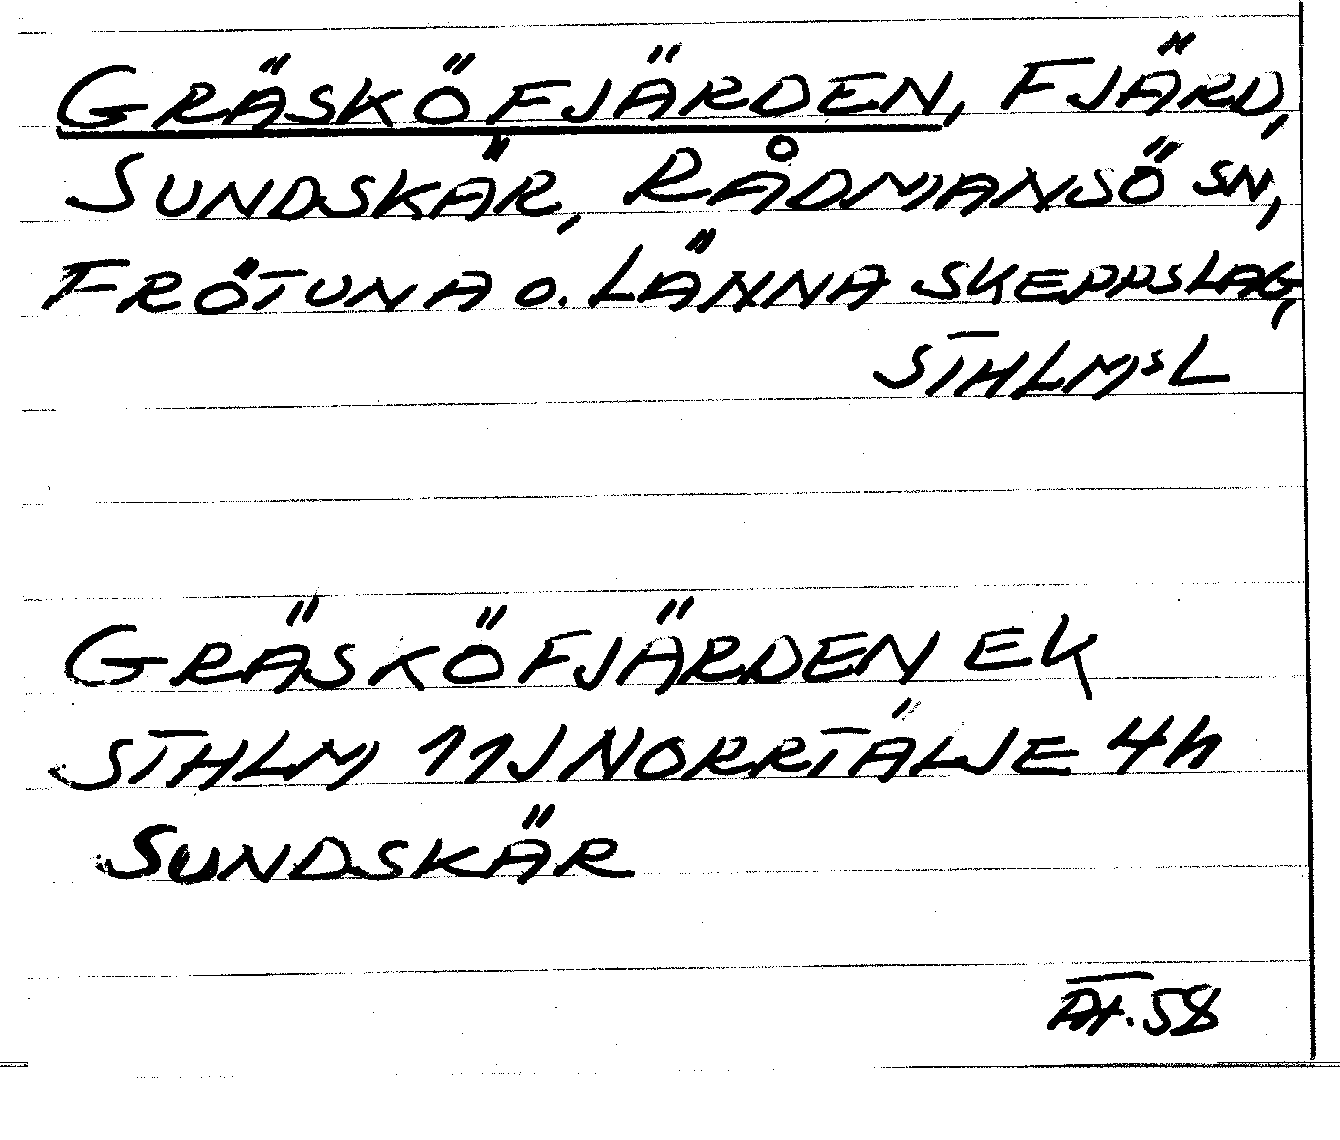 GRÄSKÖFJÄRDEN, FJÄRD,
SUNDSKÄR, RÅDMANSÖ SN,
FRÖTUNA O. LÄNNA SKEPPSLAG,
STHLMS L
GRÄSKÖFJÄRDEN EK
STHLM 11J NORRTÄLJE 4h
SUNDSKÄR
58